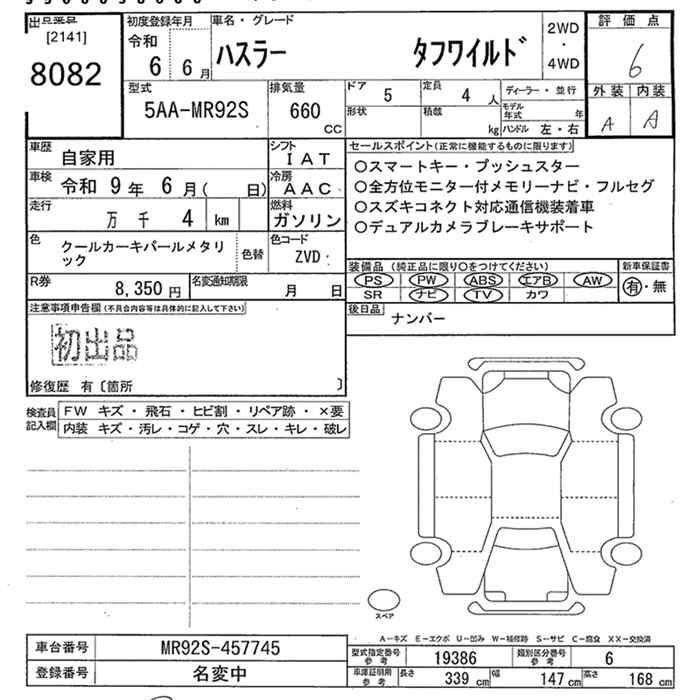 出品番号 初度登録年月 車名・グレード 2WD 評価点
[2141] 令和 ・
8082 6 6月 ハスラー タフワイルド 4WD 6
型式 排気量 ドア 5 定員 4 人 ディーラー・並行 外装 内装
5AA-MR92S 660 CC 形状 積載 kg モデル年式 年 A A
ハンドル 左・右
車歴 自家用 シフト IAT セールスポイント(正常に機能するものに限ります)
車検 令和 9年 6月( 日) 冷房 AAC ○スマートキー・プッシュスター
走行 万 千 4 km 燃料 ガソリン ○全方位モニター付メモリーナビ・フルセグ
○スズキコネクト対応通信機装着車
○デュアルカメラブレーキサポート
色 クールカーキパールメタリ 色替 色コード
ック ZVD
R券 8,350 円 名変通知期限 月 日 装備品 (純正品に限り○をつけてください) 新車保証書
PS PW ABS エアB AW 有・無
SR ナビ TV カワ
注意事項申告欄(不具合内容等は具体的に記入して下さい) 後日品 ナンバー
初出品
修復歴 有〔箇所 〕
検査員 FW キズ・飛石・ヒビ割・リペア跡・×要
記入欄 内装 キズ・汚レ・コゲ・穴・スレ・キレ・破レ
スペア
A−キズ E−エクボ U−凹み W−補修跡 S−サビ C−腐食 XX−交換済
車台番号 MR92S-457745 型式指定番号 参考 19386 類別区分番号 参考 6
登録番号 名変中 車庫証明用 参考 長さ 339 cm 幅 147 cm 高さ 168 cm